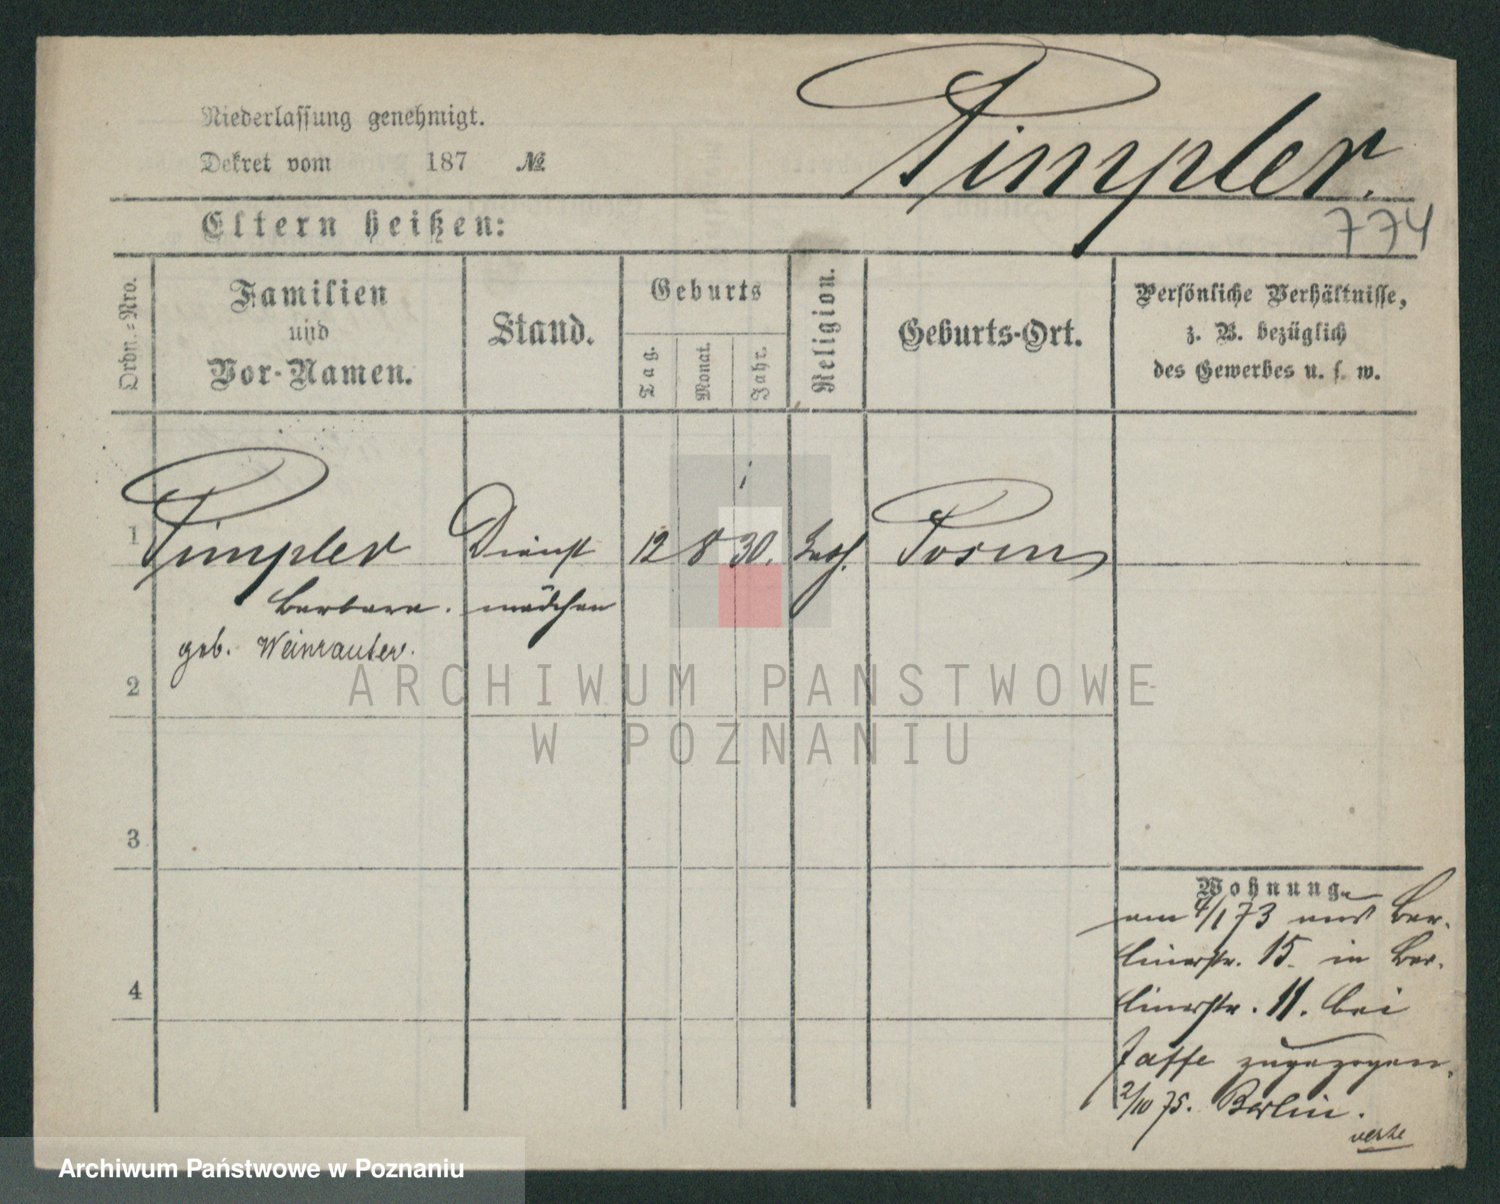 Niederlassung genehmigt.
Dekret vom 187 №
Pimpler.
774
Eltern heißen:
Ordn.-Nro.
Familien
und
Vor-Namen.
Stand.
Geburts
Tag.
Monat.
Jahr.
Religion.
Geburts-Ort.
Persönliche Verhältnisse,
z. B. bezüglich
des Gewerbes u. s. w.
1 Pimpler Dienst 12 8 30. kath. Posen
Barbara. mädchen
geb. Weinrauter.
2
3
4
Wohnung.
am 4/1 73 aus Ber-
linerstr. 15. in Ber-
linerstr. 11. bei
Jaffe zugezogen.
2/10 75. Berlin.
ARCHIWUM PAŃSTWOWE
W POZNANIU
Archiwum Państwowe w Poznaniu